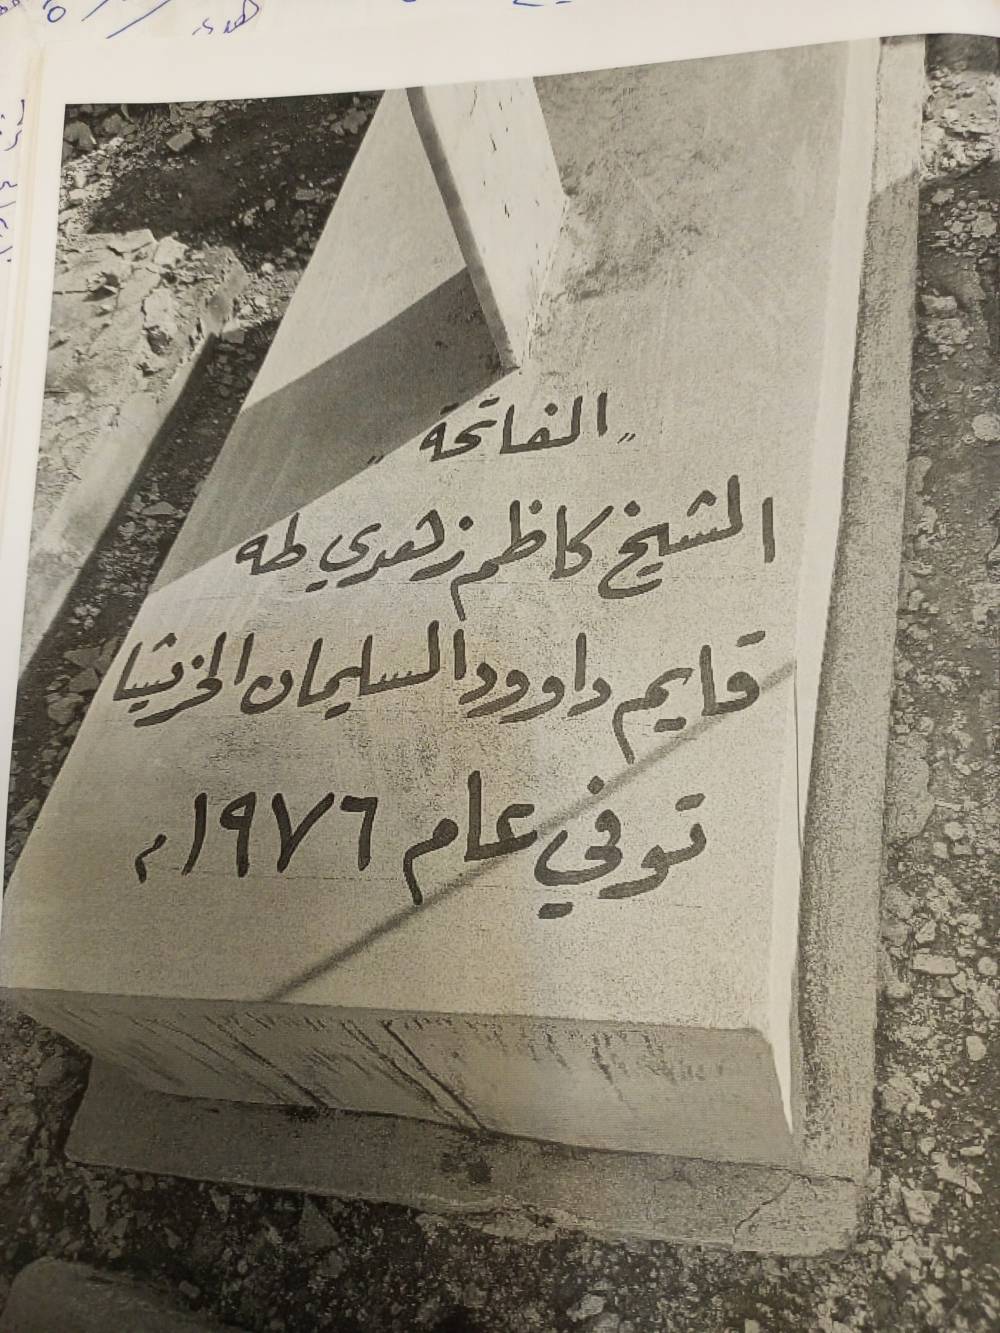 "الفاتحة"
الشيخ كاظم زهدي طه
قايم داوود السليمان الخريشا
توفي عام ١٩٧٦م